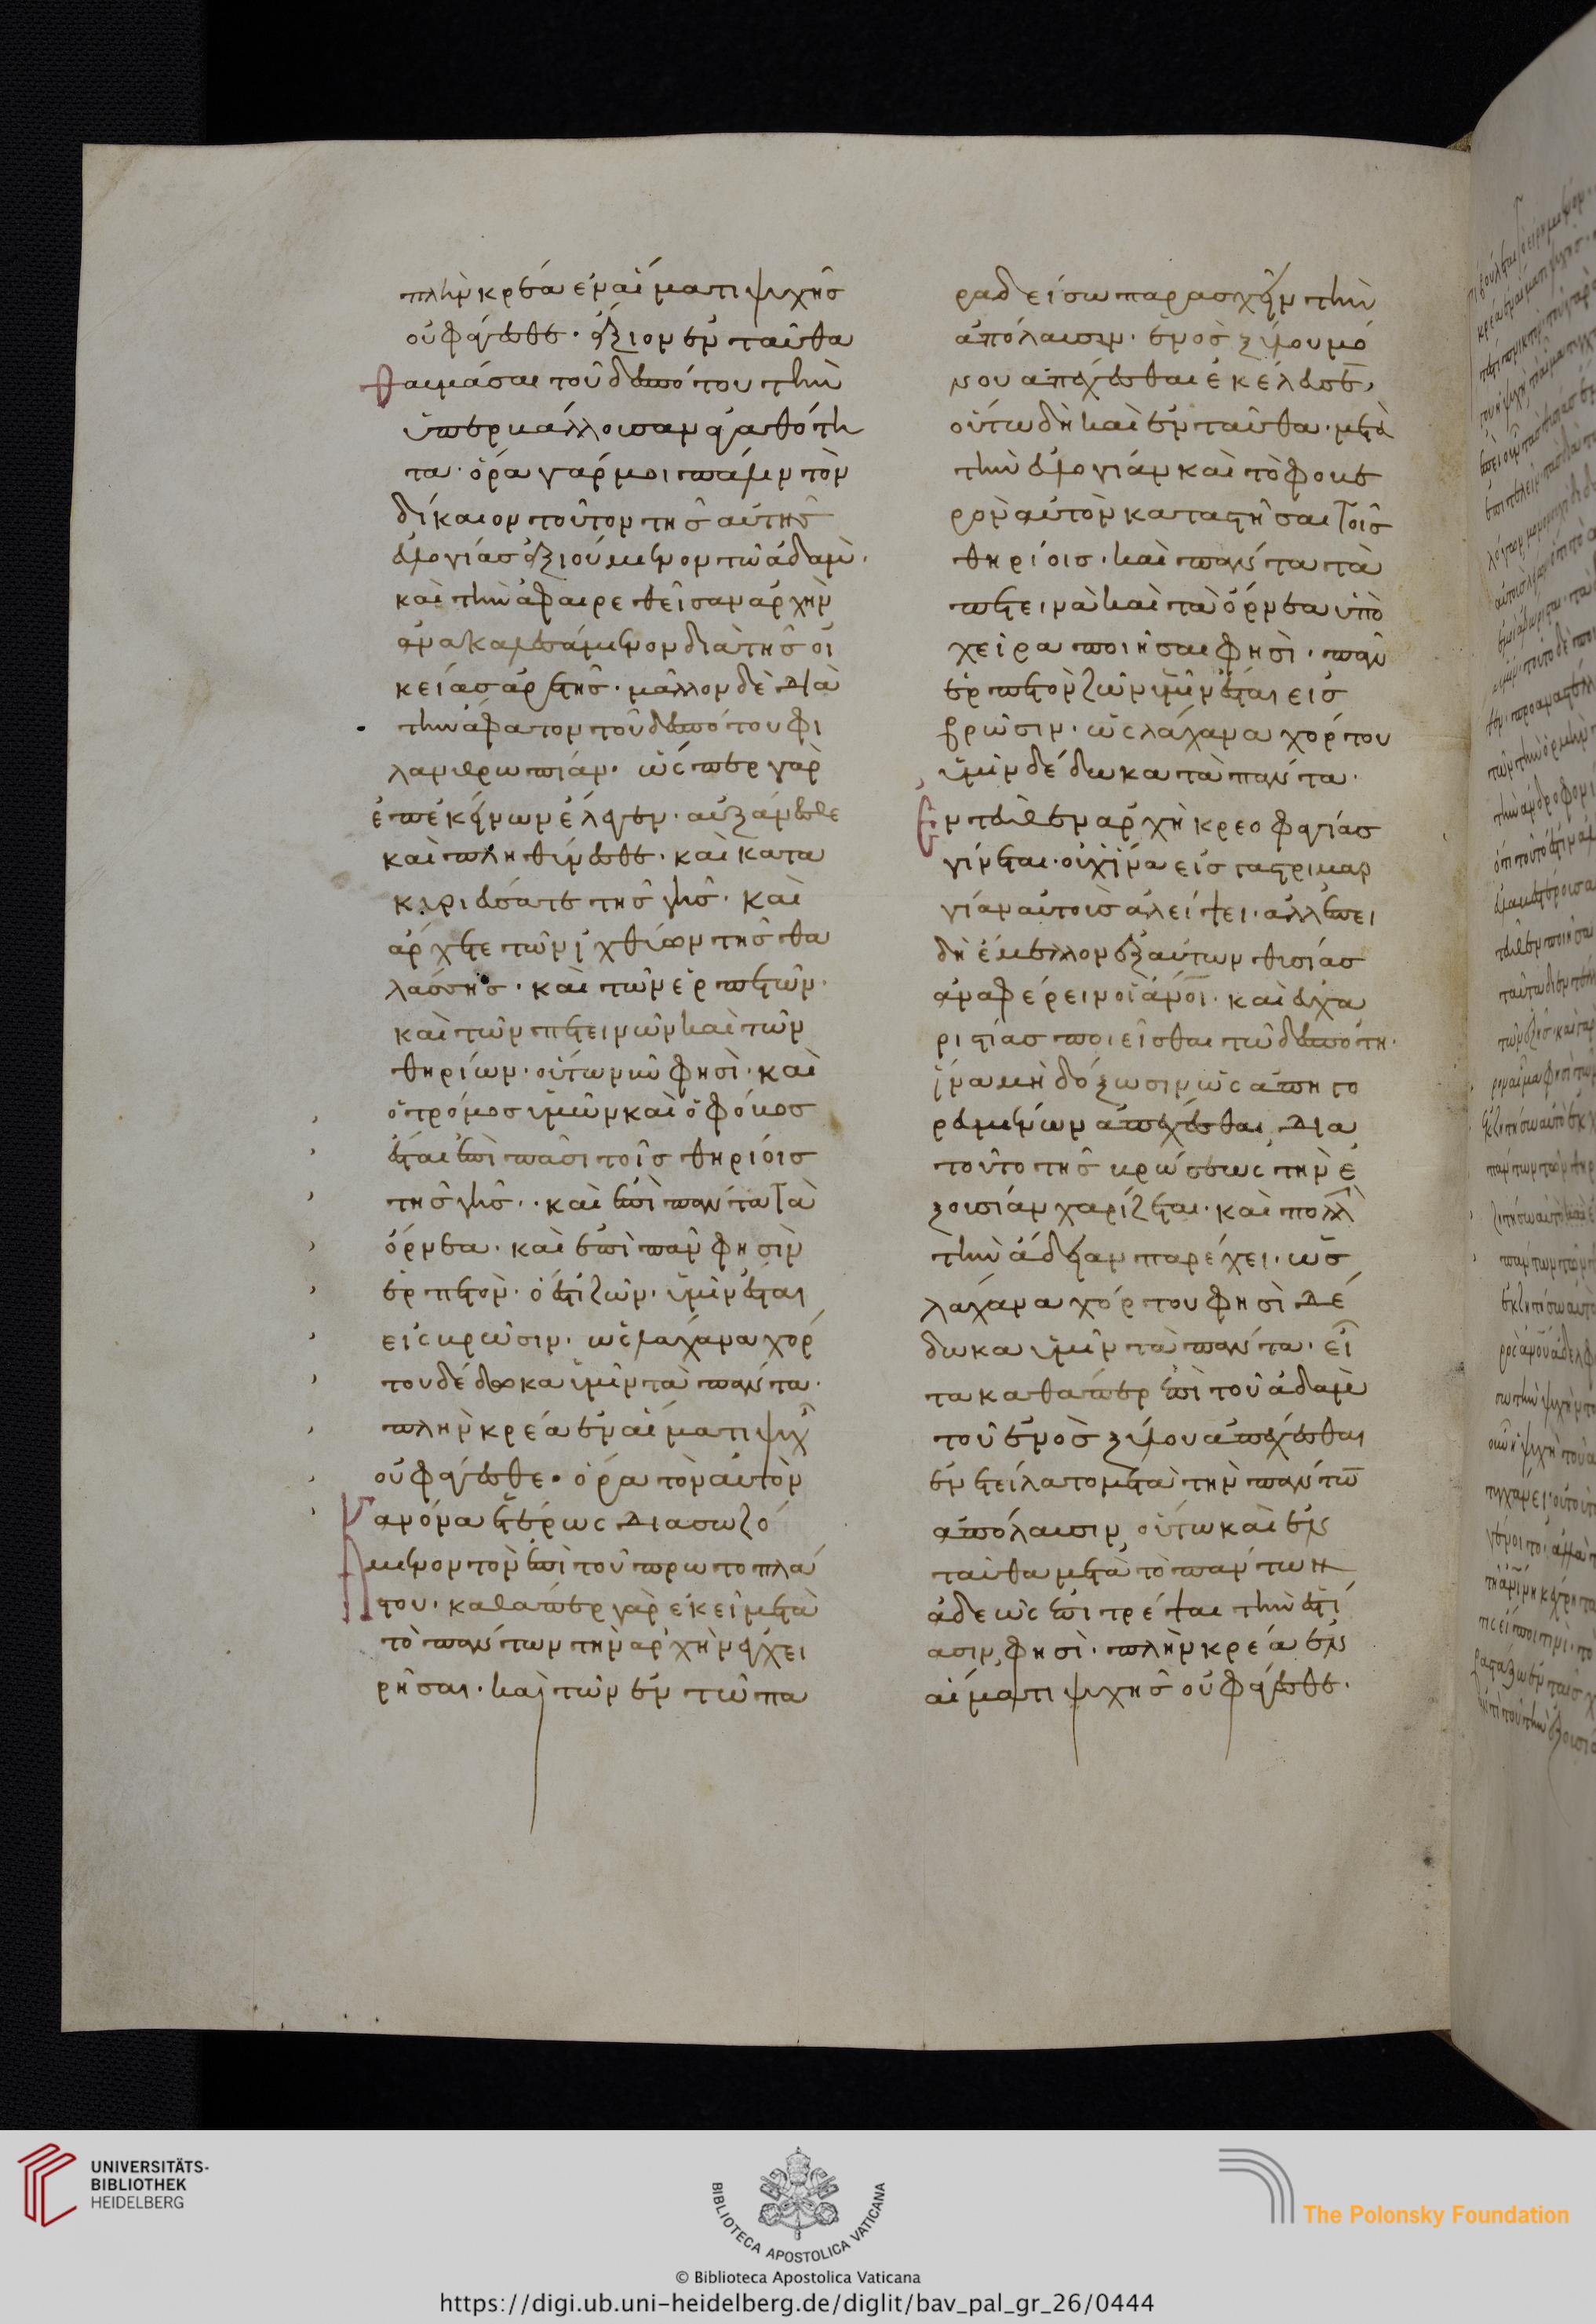 πλὴν κρέα ἐν αἵματι ψυχῆς
οὐ φάγεσθε· ἄξιον ἐνταῦθα
θαυμάσαι τοῦ δεσπότου τὴν
ὑπερβάλλουσαν ἀγαθότη
τα· ὅρα γάρ μοι πάλιν τὸν
δίκαιον τοῦτον τῆς αὐτῆς
εὐλογίας ἀξιούμενον τῷ ἀδάμ·
καὶ τὴν ἀφαιρεθεῖσαν ἀρχὴν
ἀνακαλεσάμενον διὰ τῆς οἰ
κείας ἀρετῆς· μᾶλλον δὲ διὰ
τὴν ἄφατον τοῦ δεσπότου φι
λανθρωπίαν· ὥσπερ γὰρ
ἐπ' ἐκείνων ἔλεγεν· αὐξάνεσθε
καὶ πληθύνεσθε· καὶ κατα
κυριεύσατε τῆς γῆς· καὶ
ἄρχετε τῶν ἰχθύων τῆς θα
λάσσης· καὶ τῶν ἑρπετῶν·
καὶ τῶν πετεινῶν καὶ τῶν
θηρίων· οὕτω νῦν φησὶ· καὶ
ὁ τρόμος ὑμῶν καὶ ὁ φόβος
ἔσται ἐπὶ πᾶσι τοῖς θηρίοις
τῆς γῆς·· καὶ ἐπὶ πάντα τὰ
ὄρνεα· καὶ ἐπὶ πᾶν φησὶν
ἑρπετὸν· ὅ ἐστι ζῶν· ὑμῖν ἔσται
εἰς βρῶσιν· ὡς λάχανα χόρ
του δέδωκα ὑμῖν τὰ πάντα·
πλὴν κρέα ἐν αἵματι ψυχῆς
οὐ φάγεσθε· ὅρα τὸν αὐτὸν
κανόνα ἑτέρως διασωζό
μενον τὸν ἐπὶ τοῦ πρωτοπλάσ
του· καθάπερ γὰρ ἐκεῖ μετὰ
τὸ πάντων τὴν ἀρχὴν ἐγχει
ρῆσαι· καὶ τῶν ἐν τῷ πα
ραδείσω παρασχεῖν τὴν
ἀπόλαυσιν· ἑνὸς ξύλου μό
νου ἀπέχεσθαι ἐκέλευσεν,
οὕτω δὴ καὶ ἐνταῦθα· μετὰ
τὴν εὐλογίαν καὶ τὸ φοβε
ρὸν αὐτὸν καταστῆσαι τοῖς
θηρίοις· καὶ πάντα τὰ
πετεινὰ καὶ τὰ ὄρνεα ὑπὸ
χεῖρα ποιῆσαι φησὶ· πᾶν
ἑρπετὸν ζῶν ὑμῖν ἔσται εἰς
βρῶσιν· ὡς λάχανα χόρτου
ὑμῖν δέδωκα τὰ πάντα·
ἐντεῦθεν ἀρχὴ κρεοφαγίας
γίνεται· οὐχ ἵνα εἰς γαστριμαρ
γίαν αὐτοὺς ἀλείψει· ἀλλ' ἐπει
δὴ ἔμελλον ἐξ αὐτῶν θυσίας
ἀναφέρειν οἱ ἄνοι· καὶ εὐχα
ριστίας ποιεῖσθαι τῷ δεσπότη·
ἵνα μὴ δόξωσιν ὡς ἀπηγο
ρευμένων ἀπέχεσθαι, διὰ
τοῦτο τῆς βρώσεως τὴν ἐ
ξουσίαν χαρίζεται· καὶ πολλὴν
τὴν ἄδειαν παρέχει· ὡς
λάχανα χόρτου φησὶ δέ
δωκα ὑμῖν τὰ πάντα· εἶ
τα καθάπερ ἐπὶ τοῦ ἀδὰμ
τοῦ ἑνὸς ξύλου ἀπέχεσθαι
ἐνετείλατο μετὰ τὴν πάντων
ἀπόλαυσιν, οὕτω καὶ ἐν
ταῦθα μετὰ τὸ πάντων
ἀδεῶς ἐπιτρέψαι τὴν ἑστί
ασιν, φησὶ· πλὴν κρέα ἐν
αἵματι ψυχῆς οὐ φάγεσθε·
UNIVERSITÄTS-
BIBLIOTHEK
HEIDELBERG
BIBLIOTECA APOSTOLICA VATICANA
© Biblioteca Apostolica Vaticana
The Polonsky Foundation
https://digi.ub.uni-heidelberg.de/diglit/bav_pal_gr_26/0444